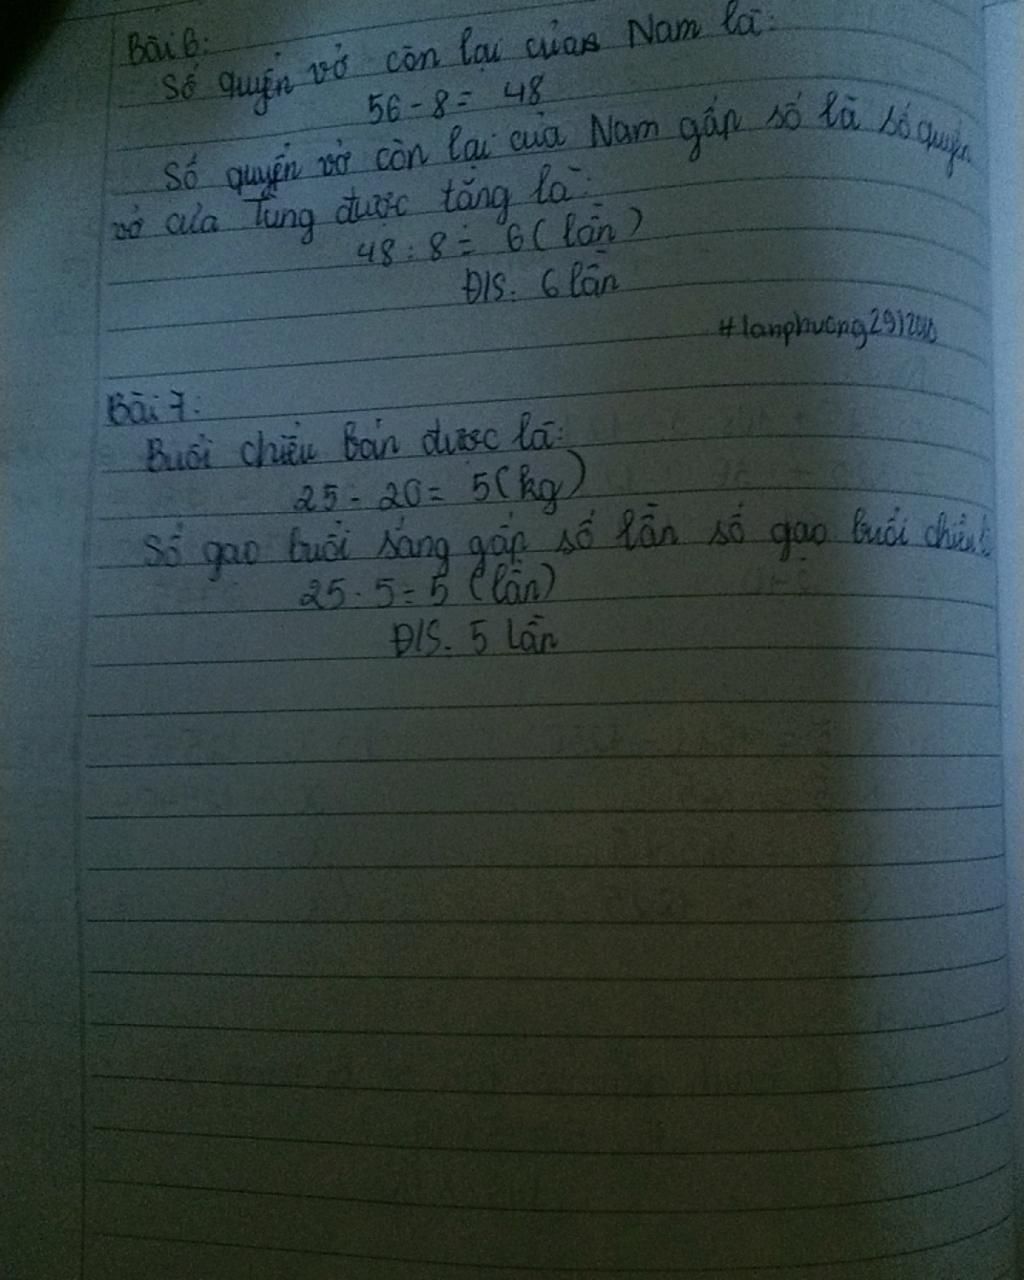 Bài 6:
Số quyển vở còn lại của Nam là:
56 - 8 = 48
Số quyển vở còn lại của Nam gấp số lã số quyển
vở của Tùng được tăng là:
48 : 8 = 6 ( lần )
Đ/S: 6 lần
#lanphuong29
Bài 7:
Buổi chiều bán được là:
25 - 20 = 5 ( kg )
Số gạo buổi sáng gấp số lần số gạo buổi chiều
25 : 5 = 5 ( lần )
Đ/S: 5 lần